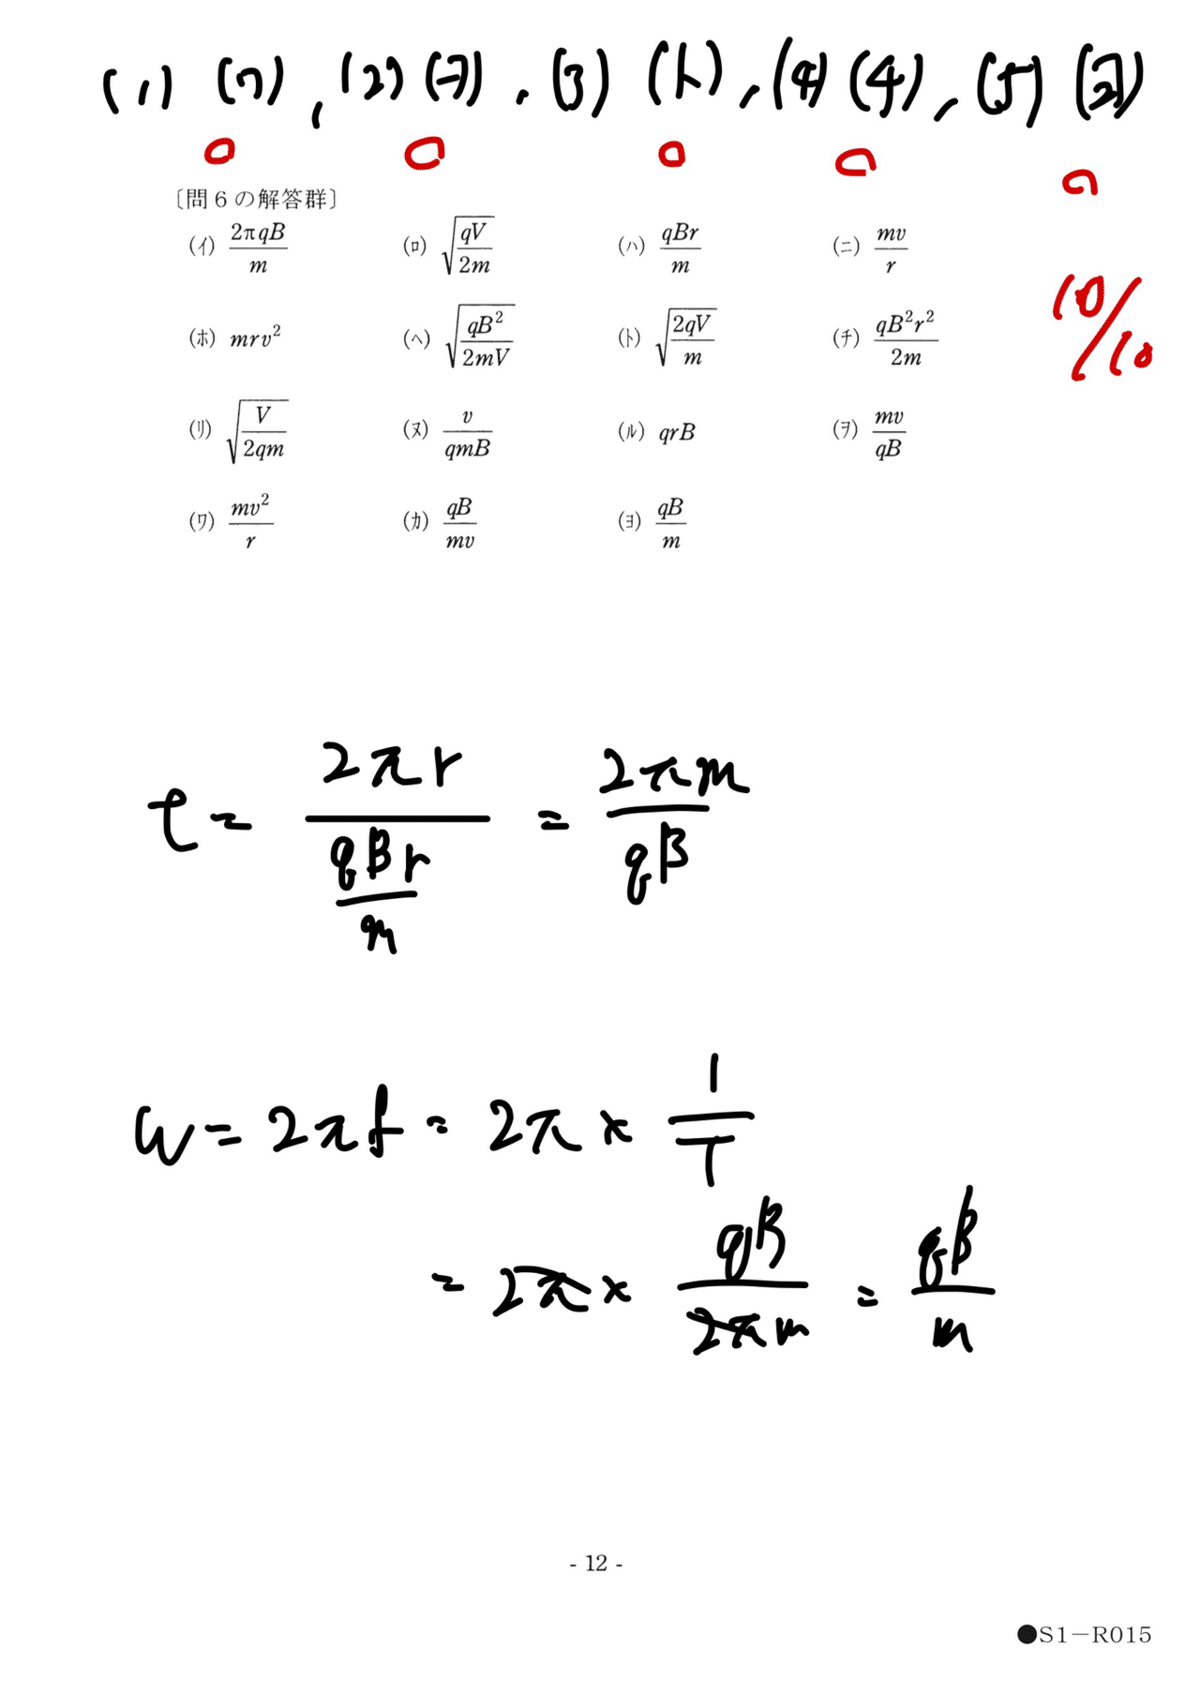 (1) (ワ), (2) (ヲ), (3) (ト), (4) (チ), (5) (ヨ)
〔問6の解答群〕
(イ) 2πqB/m (ロ) √(qV/2m) (ハ) qBr/m (ニ) mv/r
(ホ) mrv² (ヘ) √(qB²/2mV) (ト) √(2qV/m) (チ) qB²r²/2m
10/10
(リ) √(V/2qm) (ヌ) v/qmB (ル) qrB (ヲ) mv/qB
(ワ) mv²/r (カ) qB/mv (ヨ) qB/m
t = 2πr/(qBr/m) = 2πm/qB
ω = 2πf = 2π × 1/T
= 2π × qB/2πm = qB/m
- 12 -
●S1－R015